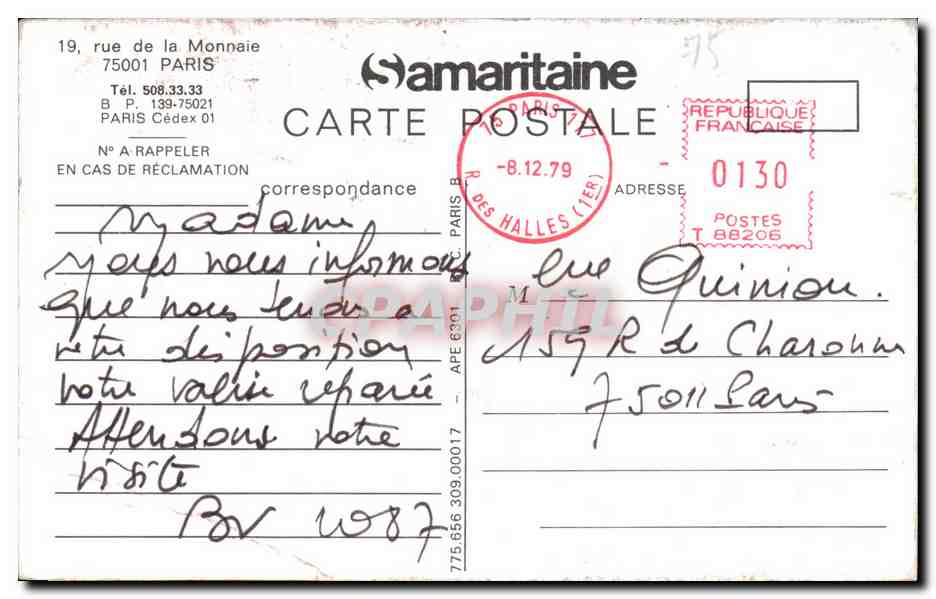 19, rue de la Monnaie
75001 PARIS
Tél. 508.33.33
B P. 139-75021
PARIS Cédex 01
N° A RAPPELER
EN CAS DE RÉCLAMATION
Samaritaine
CARTE POSTALE
75
75 PARIS 117
-8.12.79
R. DES HALLES (1ER)
REPUBLIQUE
FRANCAISE
0130
POSTES
T 88206
correspondance
ADRESSE
Madame
Nous nous informons
que nous tenons a
votre disposition
votre valise réparée
Attendons votre
visite
BV 1087
775.656 309.00017 - APE 6301 R.C. PARIS B
M lle Quiniou.
159 R de Charonne
75011 Paris
CPAPHIL